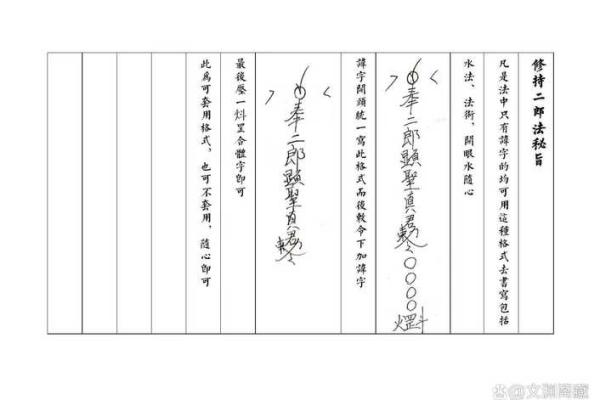 修持二郎法秘旨
凡是法中只有諱字的均可用這種格式去書寫包括
水法、法術、開眼水隨心
奉二郎顯聖真君敕令〇〇〇〇
諱字開頭統一寫此格式而後敕令下加諱字
奉二郎顯聖真君敕令
最後壓一罡合體字即可
此爲可套用格式、也可不套用、隨心即可
@文渊阁藏